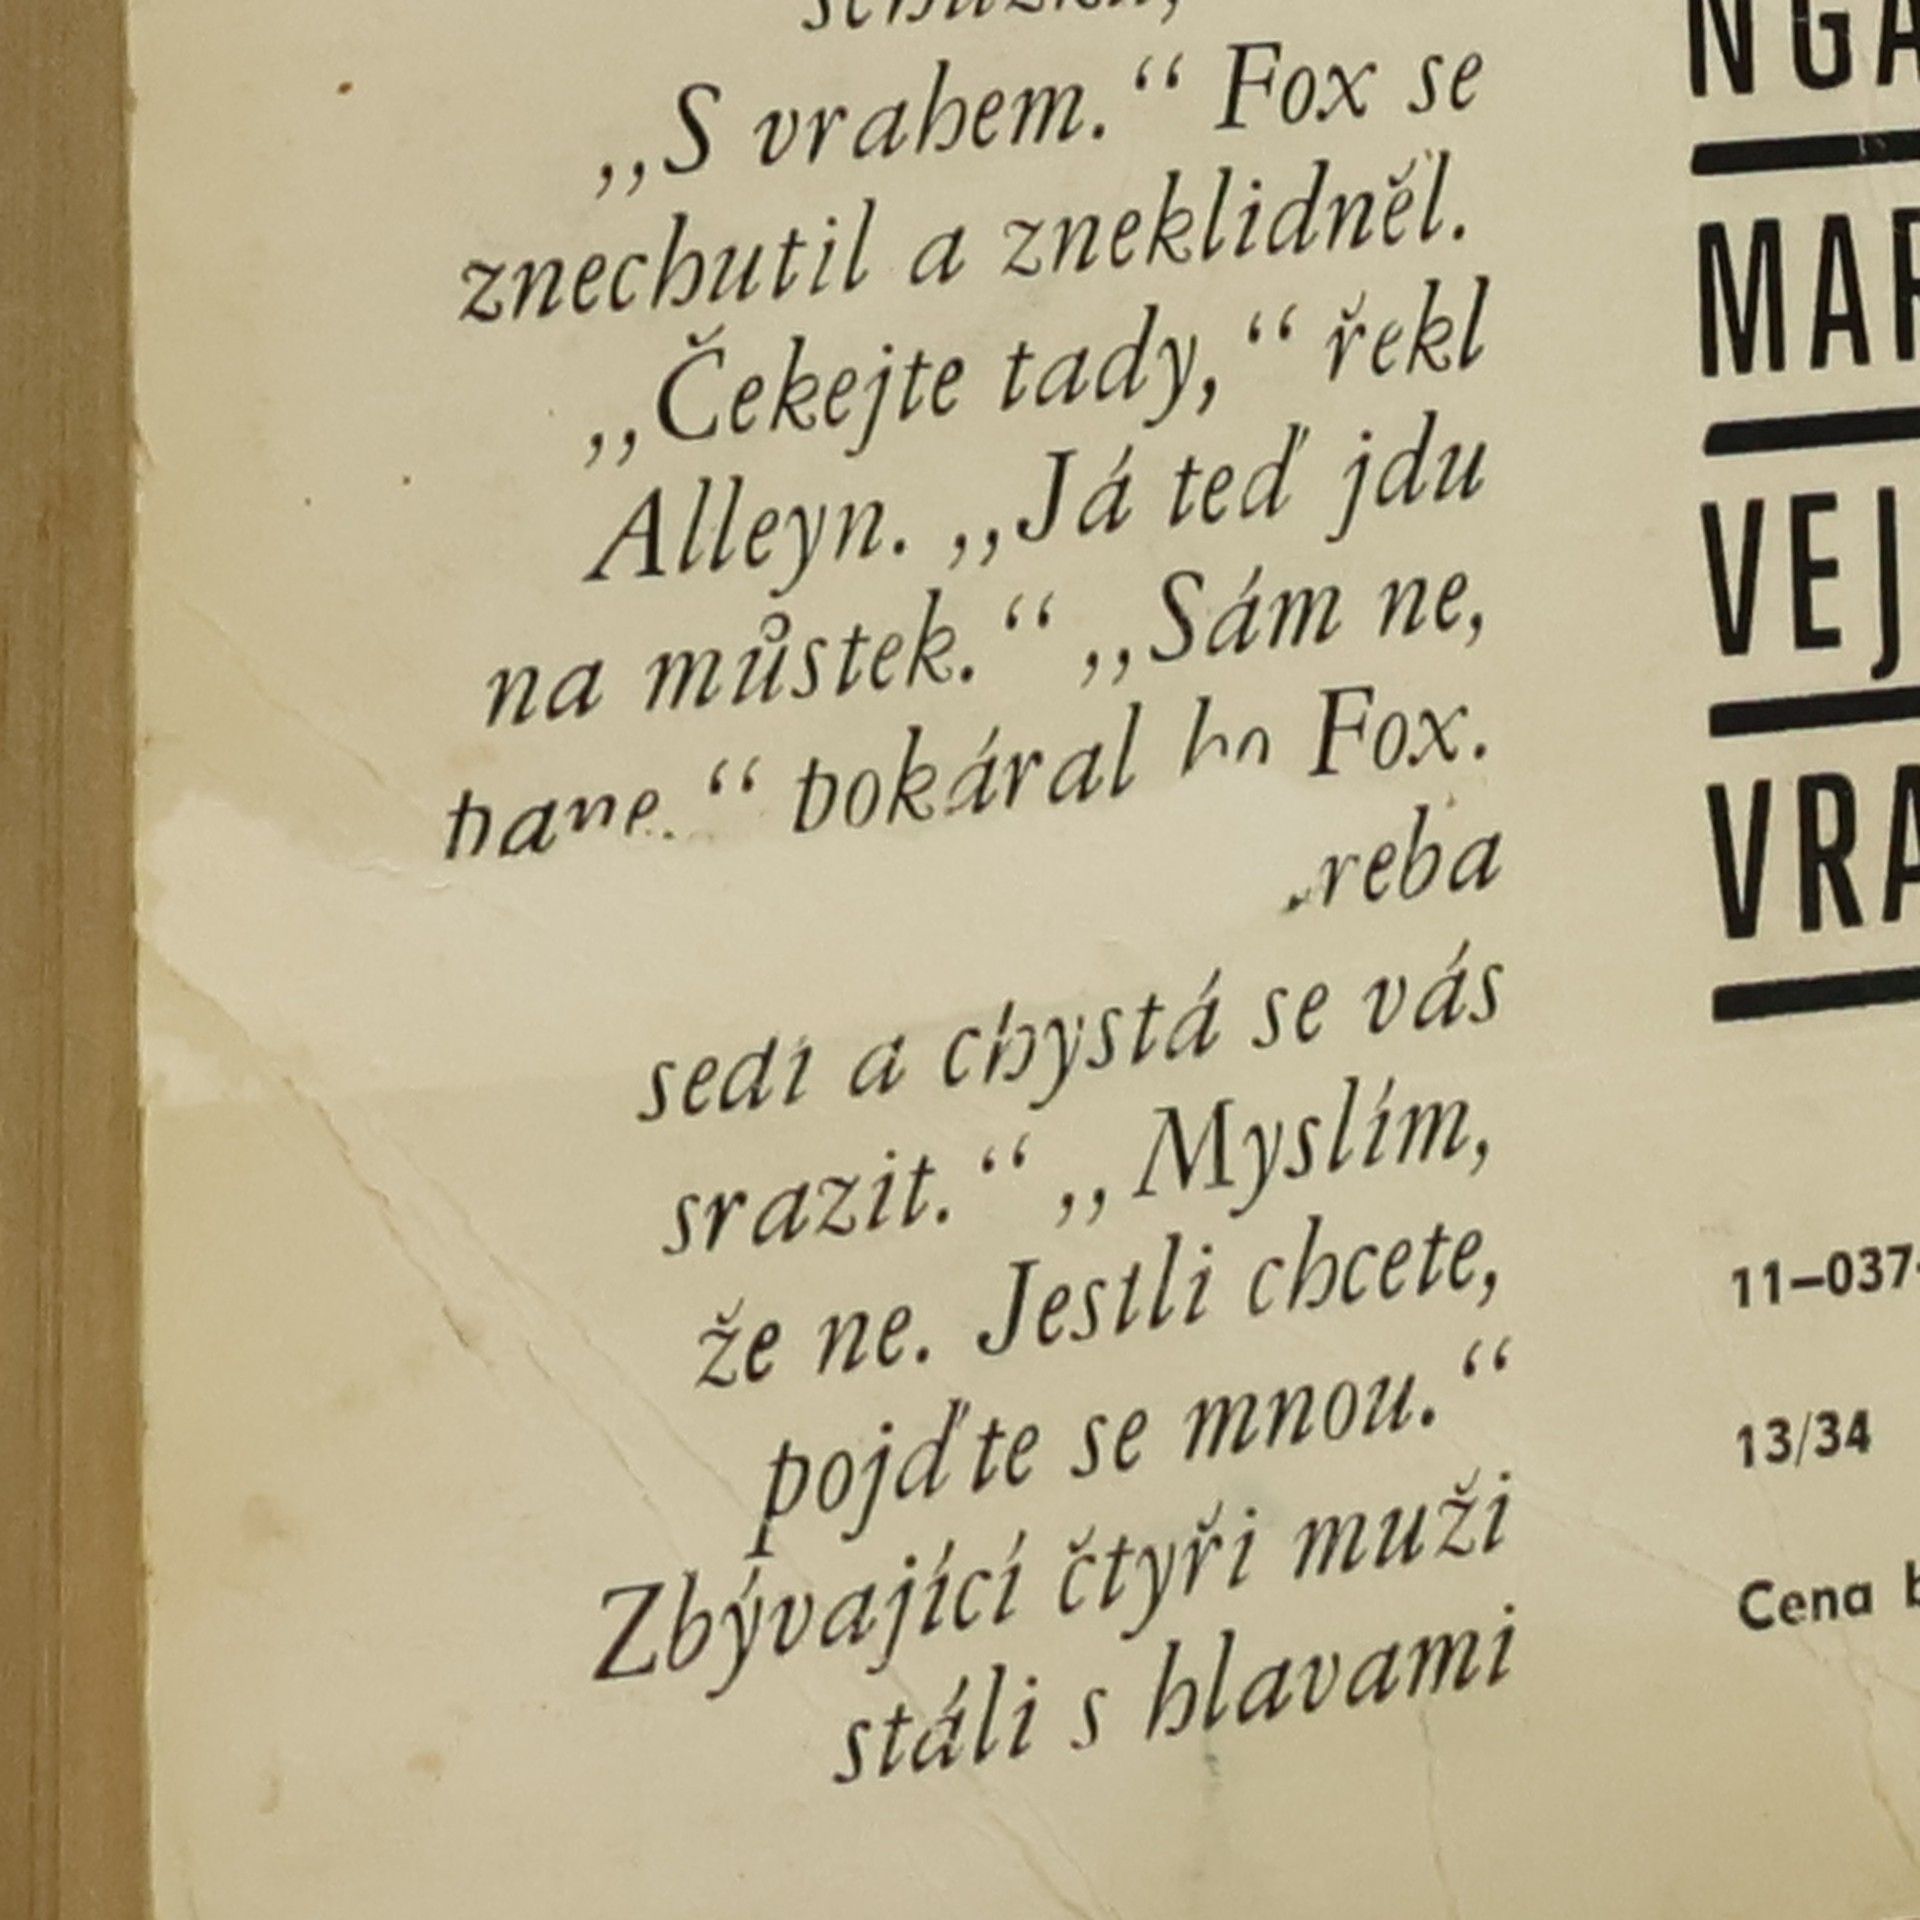 „S vrahem.“ Fox se
znechutil a zneklidněl.
„Čekejte tady,“ řekl
Alleyn. „Já teď jdu
na můstek.“ „Sám ne,
pane.“ pokáral ho Fox.
sedí a chystá se vás
srazit.“ „Myslím,
že ne. Jestli chcete,
pojďte se mnou.“
Zbývající čtyři muži
stáli s hlavami
NGA
MAR
VEJ
VRA
11–037-
13/34
Cena